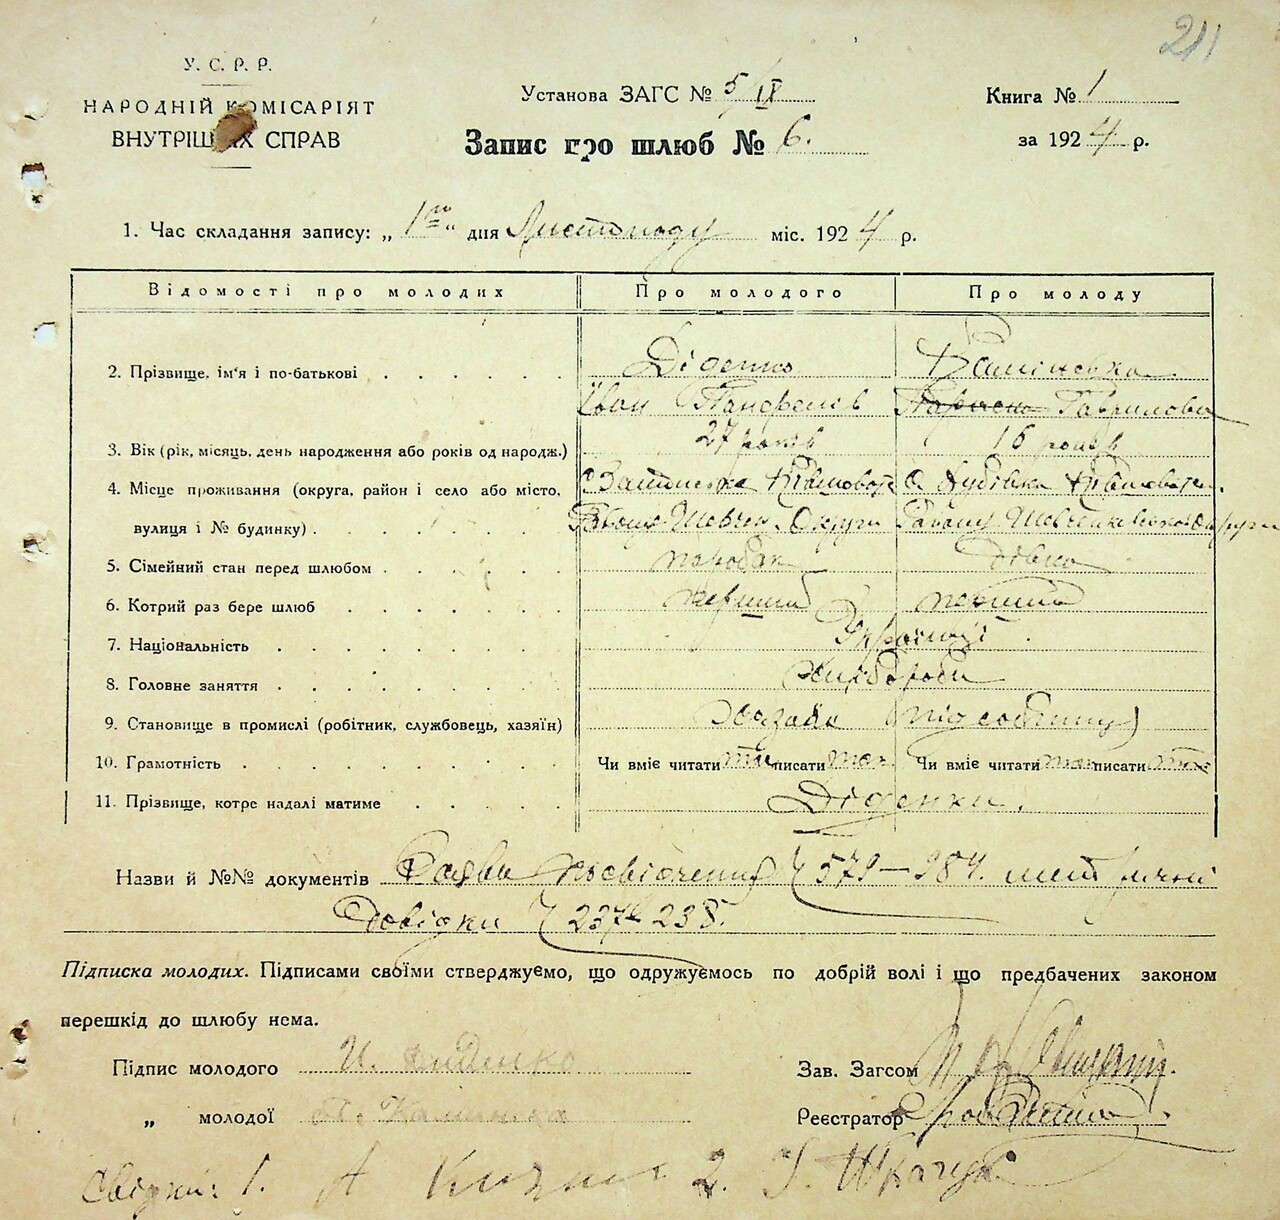 211
У. С. Р. Р.
НАРОДНІЙ КОМІСАРІЯТ
ВНУТРІШНІХ СПРАВ
Установа ЗАГС № 5/IX
Книга № 1
Запис про шлюб № 6.
за 1924 р.
1. Час складання запису: „ 1го “ дня Листопаду міс. 1924 р.
Відомості про молодих Про молодого Про молоду
2. Прізвище, ім'я і по-батькові Діденко
Іван Панфелів Гаврилова
3. Вік (рік, місяць, день народження або років од народж.) 27 років 16 років
4. Місце проживання (округа, район і село або місто,
вулиця і № будинку) Шевчен. Округи Району Шевченківської Округи
5. Сімейний стан перед шлюбом паробак дівка
6. Котрий раз бере шлюб перший перший
7. Національність Українці.
8. Головне заняття Хлібороби
9. Становище в промислі (робітник, службовець, хазяїн) Хазяїн
10. Грамотність Чи вміє читати так писати так Чи вміє читати так писати так
11. Прізвище, котре надалі матиме Діденки.
Назви й №№ документів Заяви посвідчення 579—984.
Довідки 237 238.
Підписка молодих. Підписами своїми стверджуємо, що одружуємось по добрій волі і що предбачених законом
перешкід до шлюбу нема.
Підпис молодого И. Диденко
Зав. Загсом
„ молодої
Реєстратор
Свідки: 1. А 2.